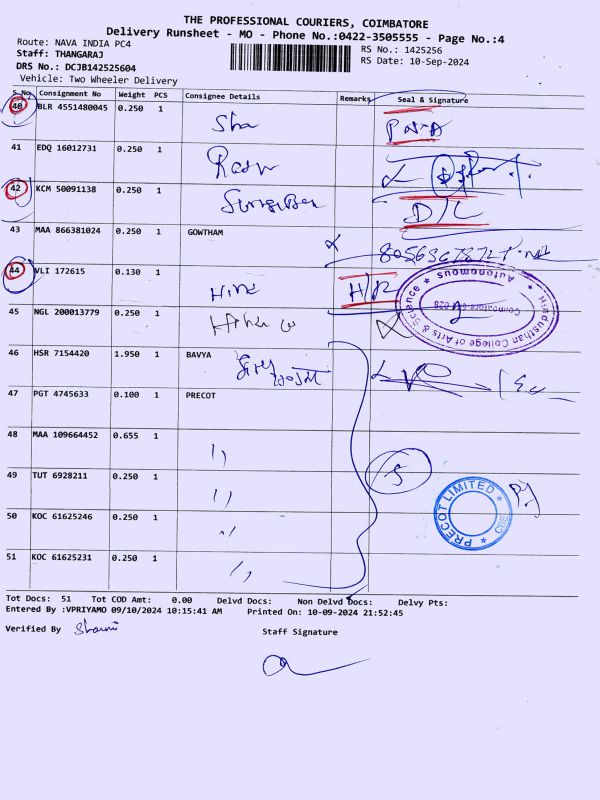 THE PROFESSIONAL COURIERS, COIMBATORE
Delivery Runsheet - MO - Phone No.:0422-3505555 - Page No.:4
Route: NAVA INDIA PC4
Staff: THANGARAJ
DRS No.: DCJB142525604
Vehicle: Two Wheeler Delivery
RS No.: 1425256
RS Date: 10-Sep-2024
S No. Consignment No Weight PCS Consignee Details Remarks Seal & Signature
40 BLR 4551480045 0.250 1
41 EDQ 16012731 0.250 1
42 KCM 50091138 0.250 1 D/L
43 MAA 866381024 0.250 1 GOWTHAM
44 VLI 172615 0.130 1 H/R
Hindusthan College of Arts & Science
Autonomous
Coimbatore
45 NGL 200013779 0.250 1
46 HSR 7154420 1.950 1 BAVYA
47 PGT 4745633 0.100 1 PRECOT
48 MAA 109664452 0.655 1 ,,
5
49 TUT 6928211 0.250 1 ,,
PRECOT LIMITED CBE
50 KOC 61625246 0.250 1 ,,
51 KOC 61625231 0.250 1 ,,
Tot Docs: 51 Tot COD Amt: 0.00 Delvd Docs: Non Delvd Docs: Delvy Pts:
Entered By :VPRIYAMO 09/10/2024 10:15:41 AM Printed On: 10-09-2024 21:52:45
Verified By
Staff Signature